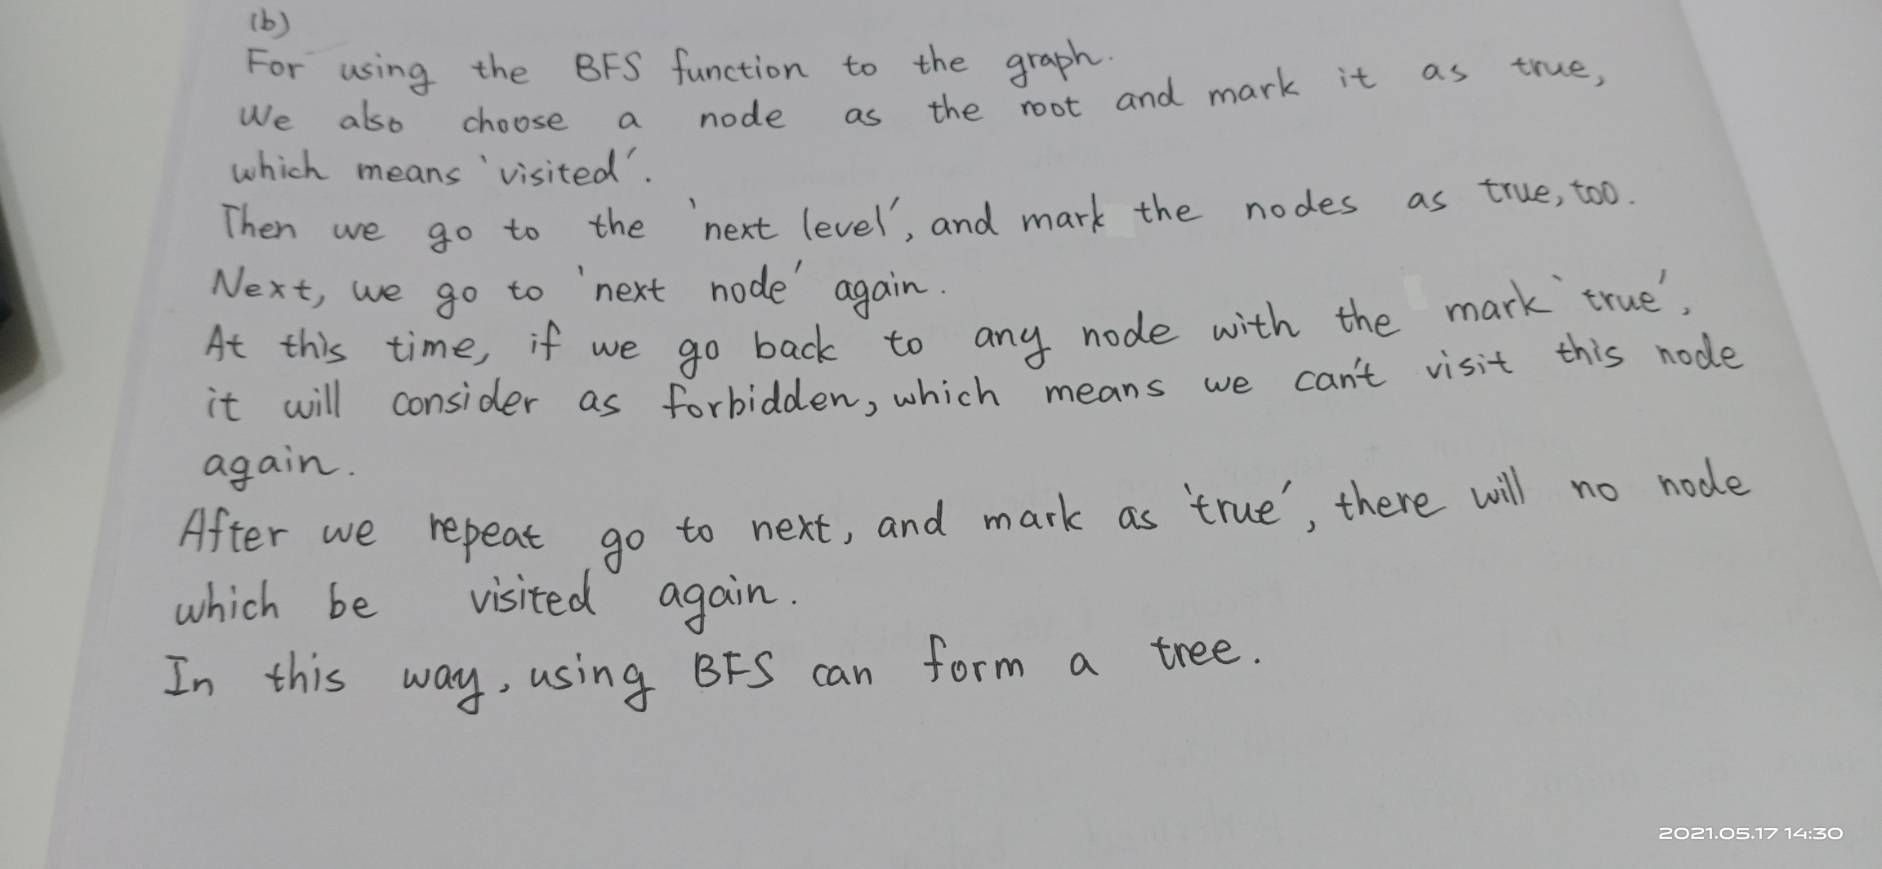 (b)
For using the BFS function to the graph.
We also choose a node as the root and mark it as true,
which means 'visited'.
Then we go to the 'next level', and mark the nodes as true, too.
Next, we go to 'next node' again.
At this time, if we go back to any node with the mark 'true',
it will consider as forbidden, which means we can't visit this node
again.
After we repeat go to next, and mark as 'true', there will no node
which be visited again.
In this way, using BFS can form a tree.
2021.05.17 14:30